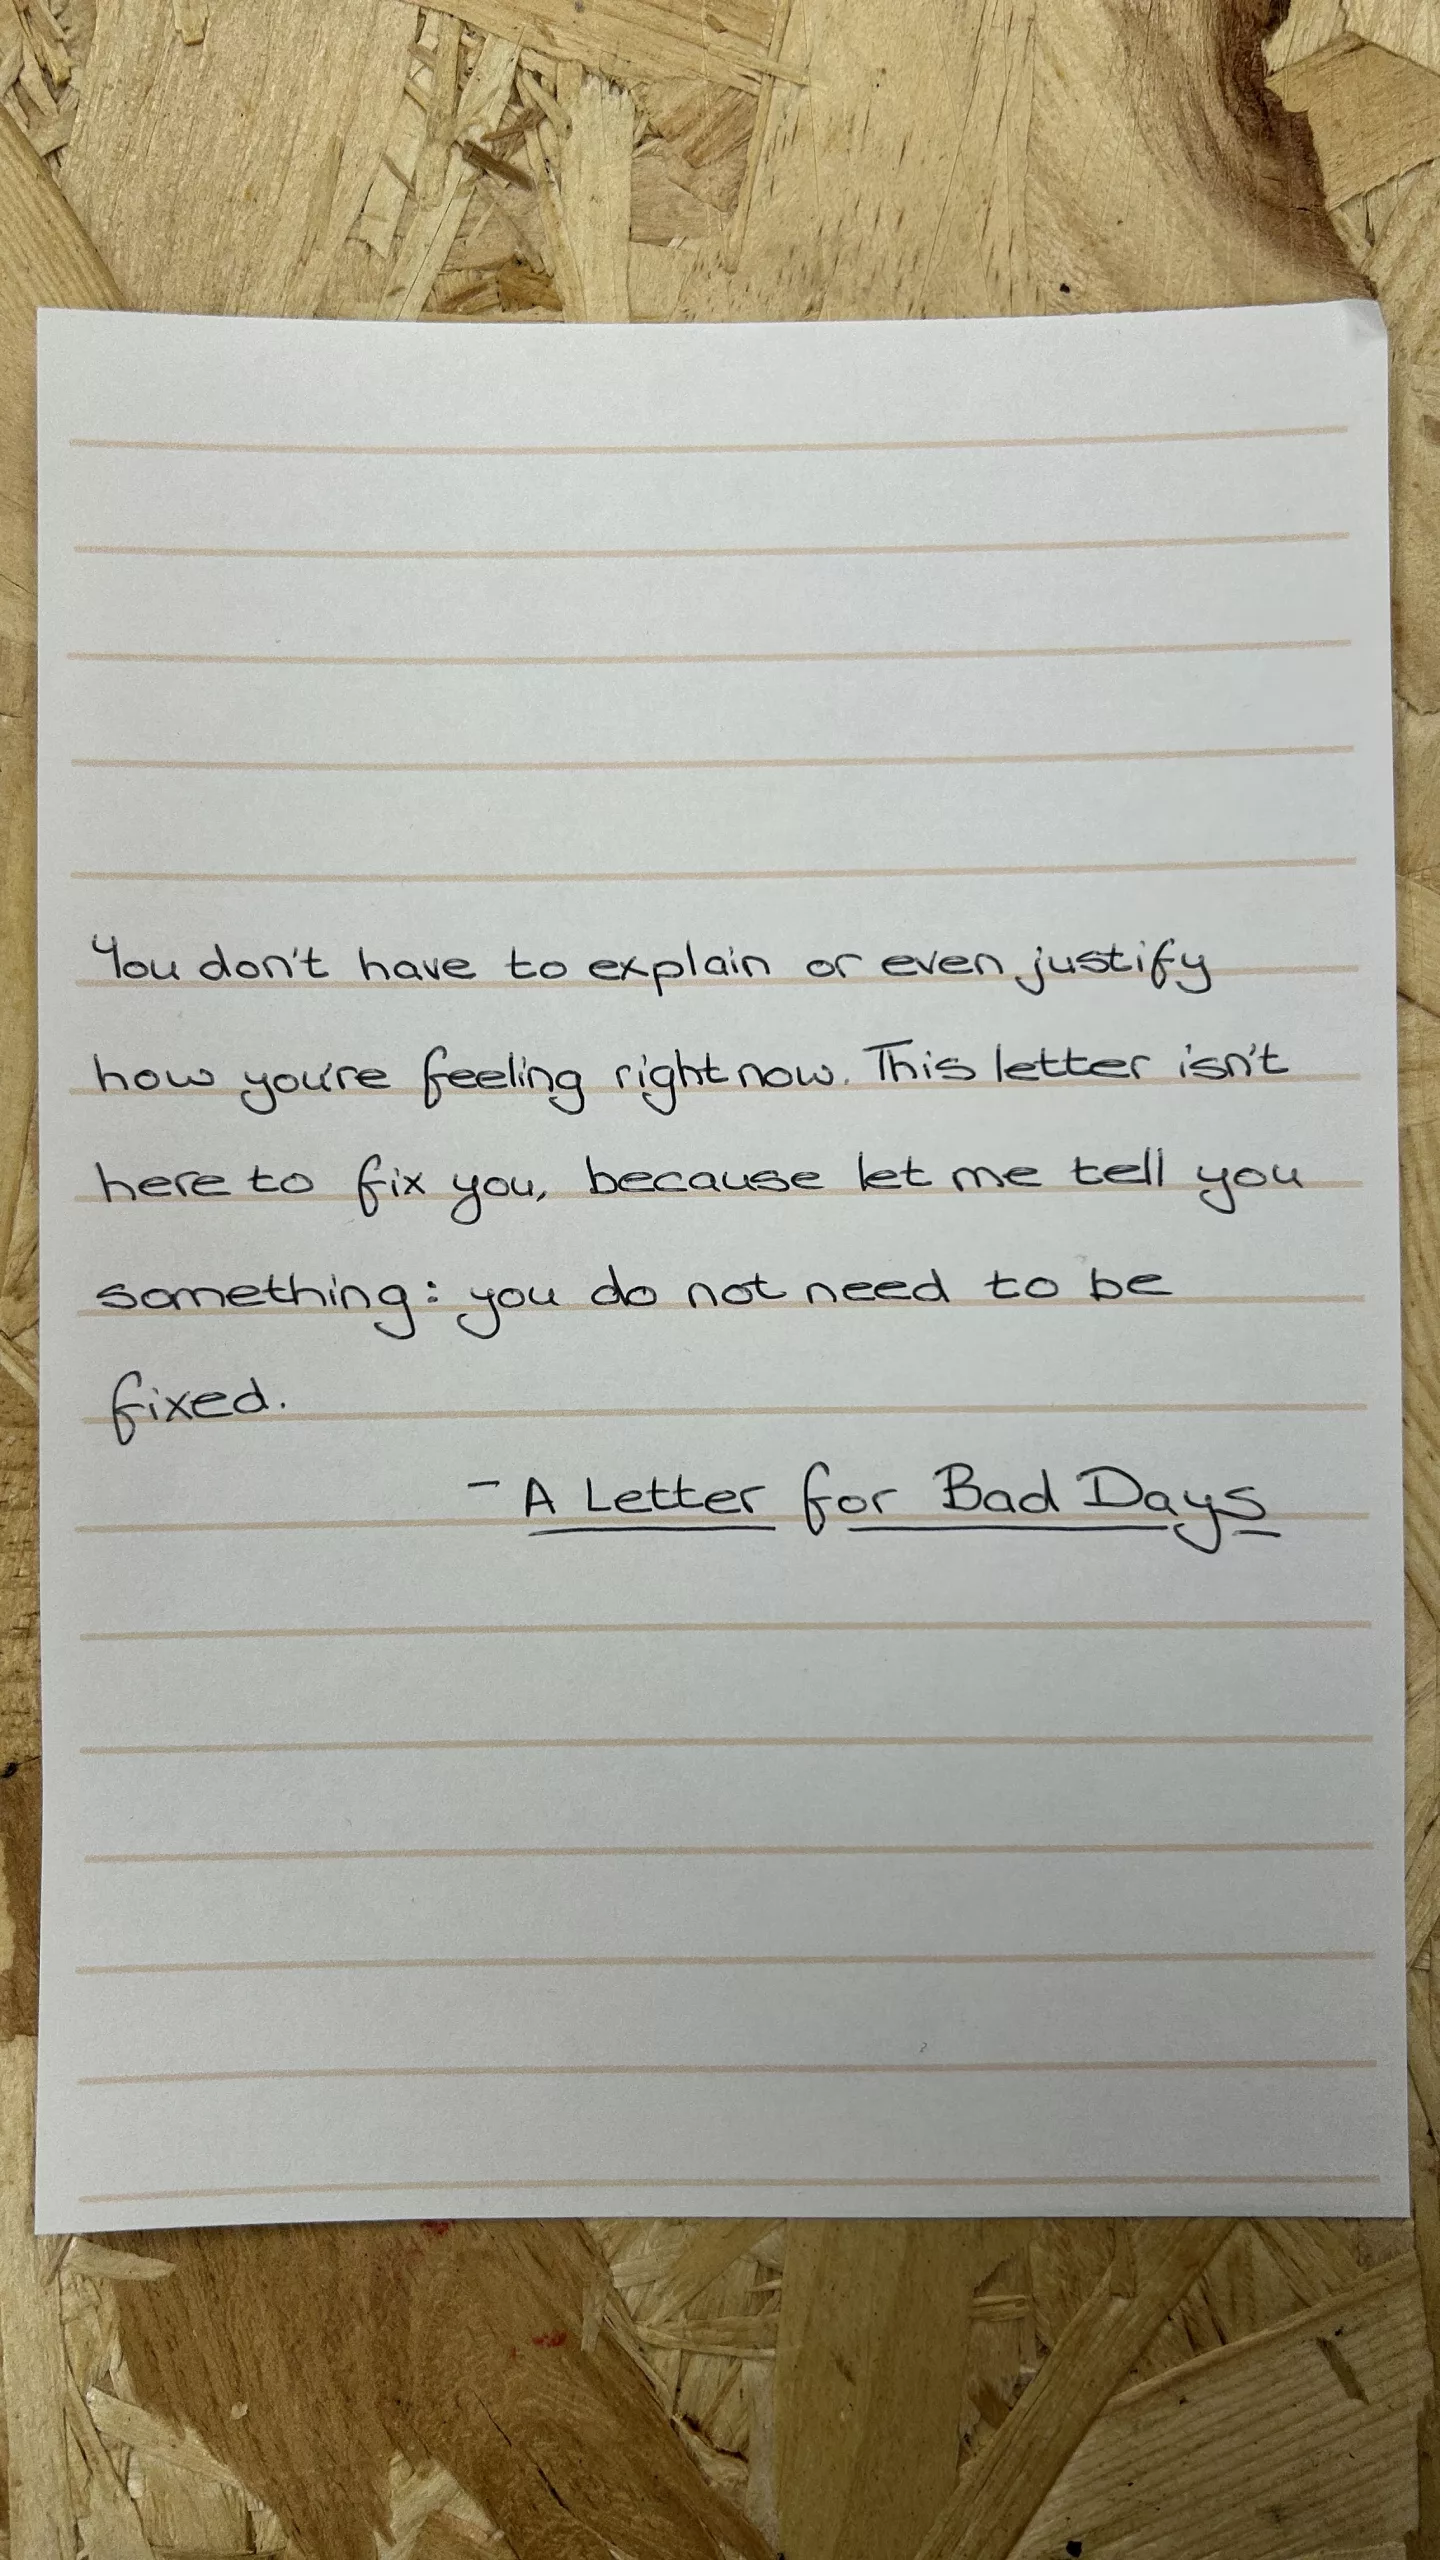 You don't have to explain or even justify
how you're feeling right now. This letter isn't
here to fix you, because let me tell you
something: you do not need to be
fixed.
- A Letter for Bad Days